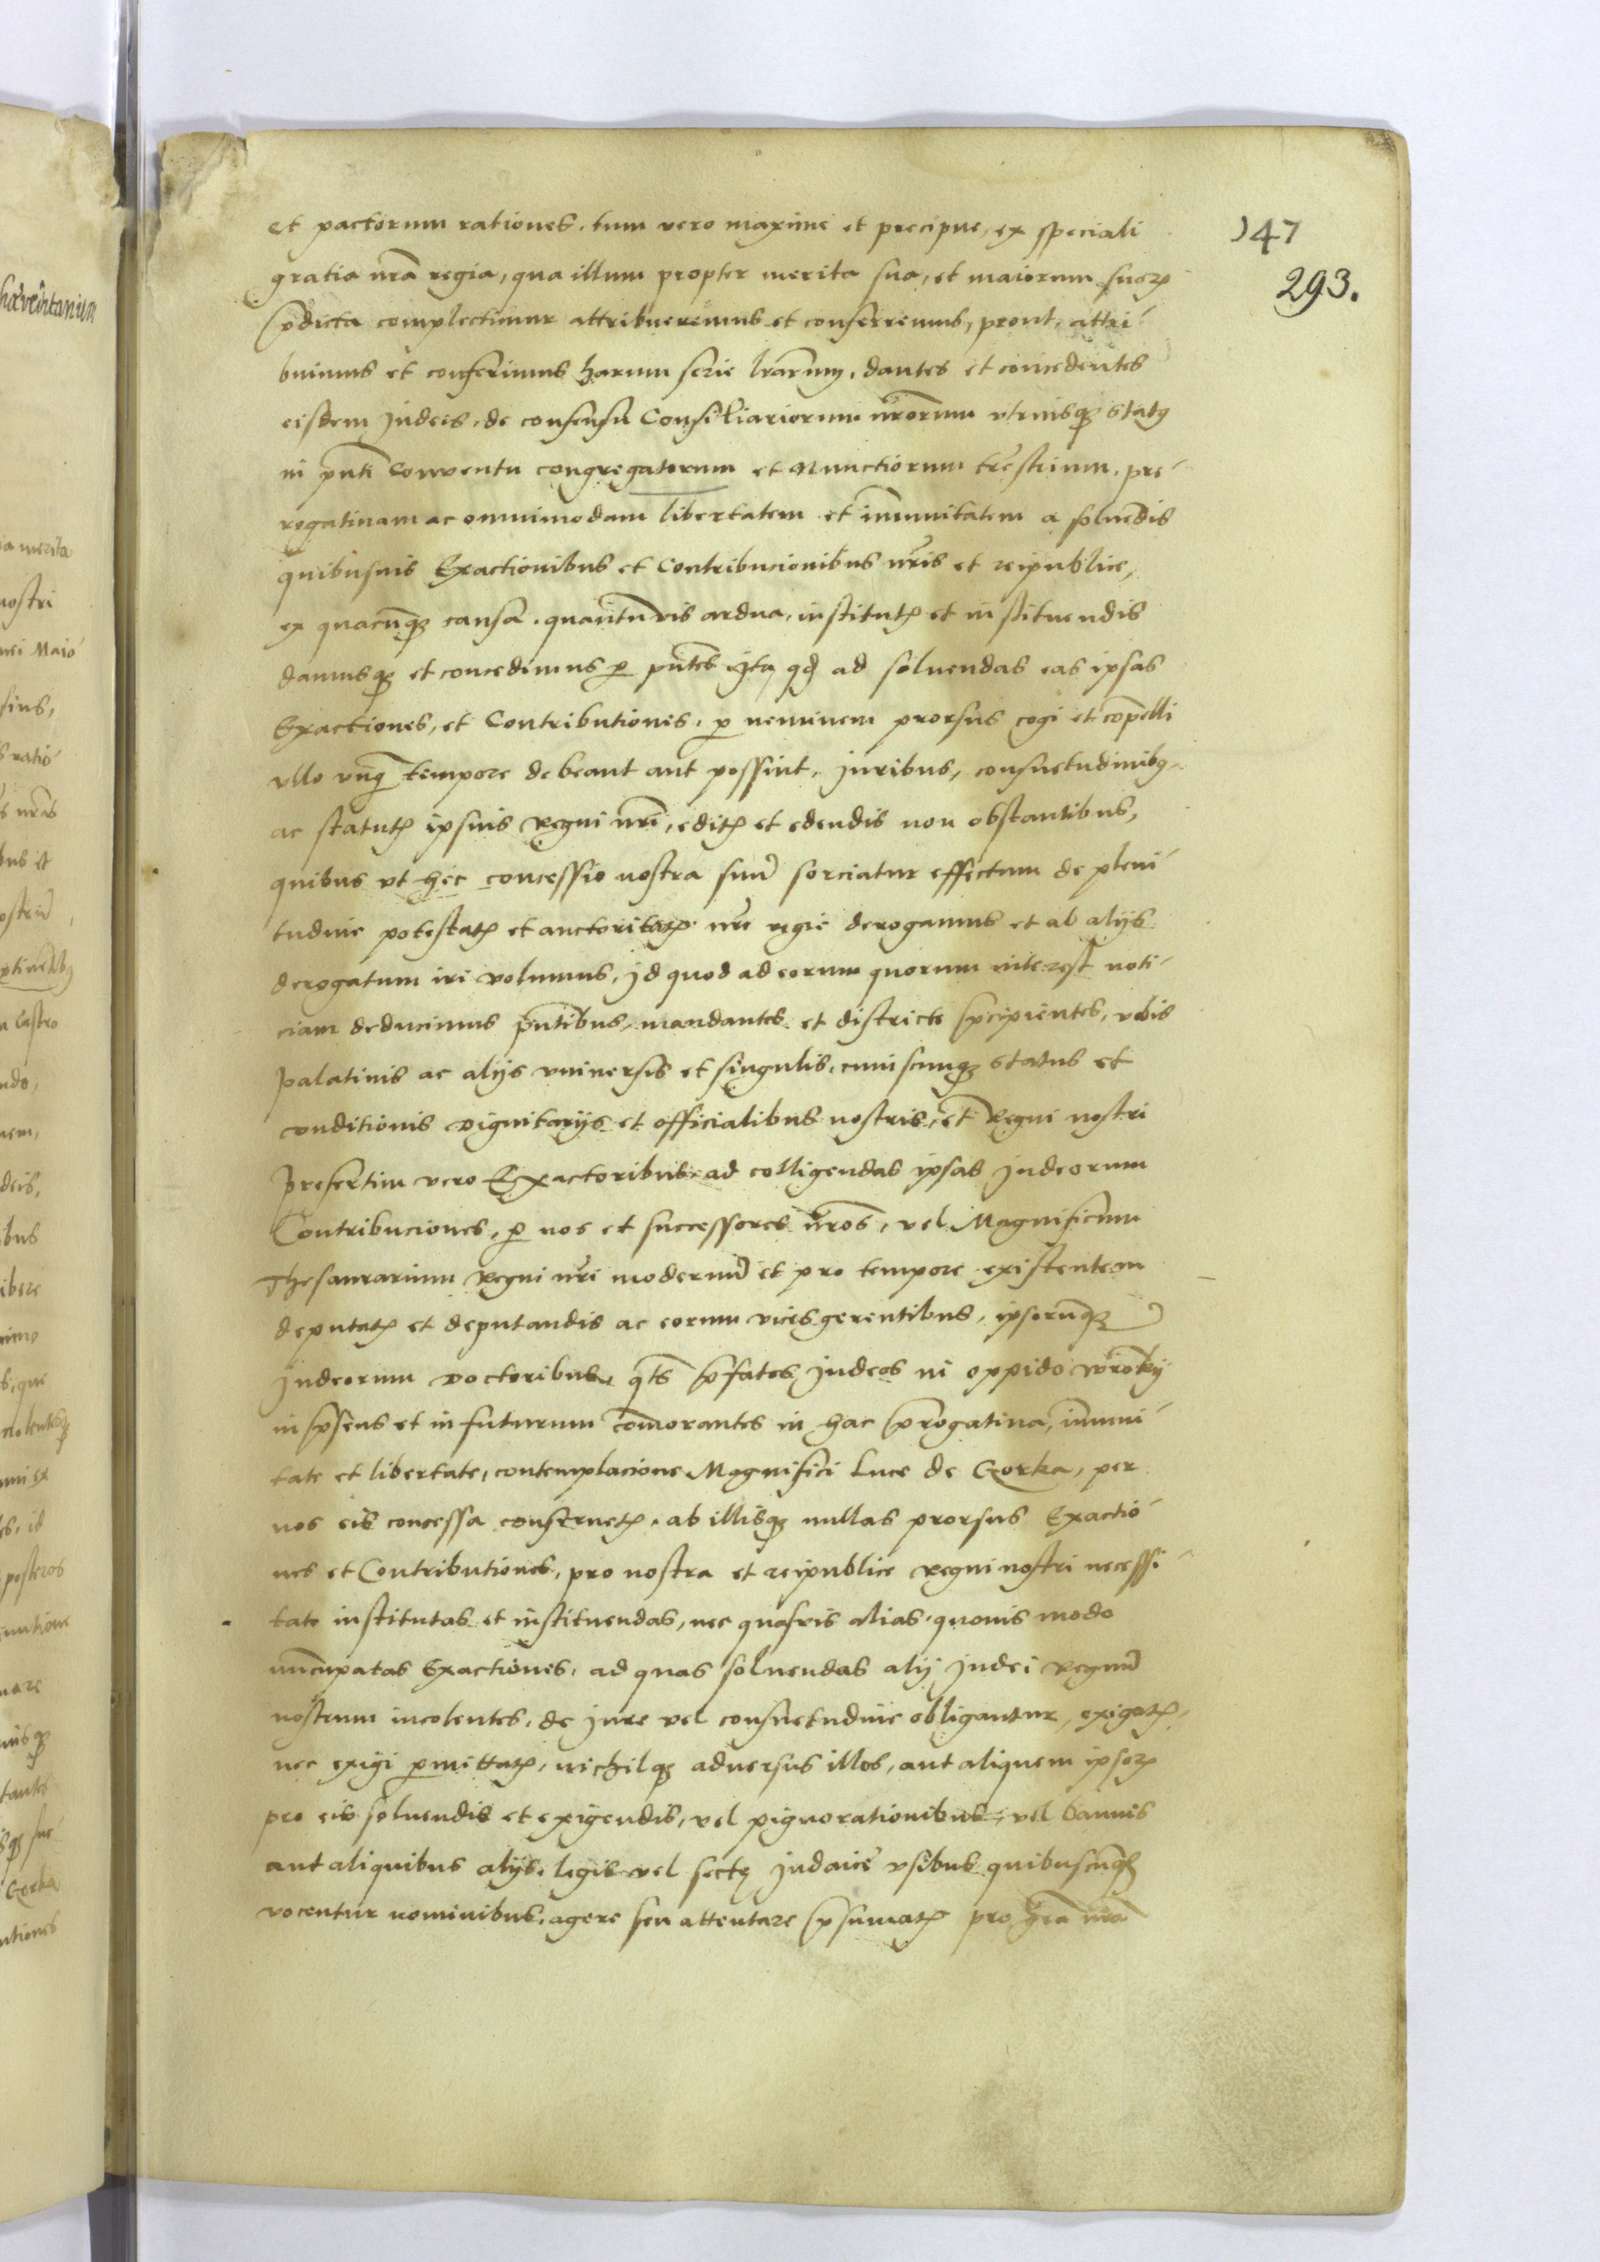 147
293.
et pactorum rationes. tum vero maxime et precipue, ex speciali
gratia nr̃a regia, qua illum propter merita sua, et maiorum suorꝫ
p̃dicta complectimur attribueremus et conferremus, prout, attri-
buimus et conferimus harum serie l̃rarum, dantes et concedentes
eisdem Judeis, de consensu Consiliariorum nr̃orum utriusqꝫ status
in p̃nti Conventu congregatorum et Nunctiorum tr̃estrium. pre-
rogatiuam ac omnimodam libertatem et im̃unitatem a soluendis
quibusuis Exactionibus et Contribucionibus nr̃is et reipublice,
ex quacũqꝫ causa. quantũvis ardua, institutꝫ et instituendis
damusqꝫ et concedimus ꝑ pñtes ita, qđ ad soluendas eas ipsas
Exactiones, et Contributiones. ꝑ neminem prorsus cogi et com̃pelli
ullo unq̃ tempore debeant aut possint. Juribus, consuetudinibꝰ
ac statutꝫ ipsius Regni nr̃i, editꝫ et edendis non obstantibus,
quibus ut hec concessio nostra suũ sorciatur effectum de pleni-
tudine potestatꝫ et auctoritatꝫ nr̃e regie derogamus et ab alijs
derogatum iri volumus. Id quod ad eorum quorum interest noti-
ciam deducimus p̃ntibus, mandantes et districte p̃cipientes, vobis
palatinis ac alijs vniuersis et singulis, cuiuscunqꝫ status et
conditionis Dignitarijs et officialibus nostris, et Regni nostri
presertim vero Exactoribus ad colligendas ipsas Judeorum
Contribuciones, ꝑ nos et successores nr̃os, vel Magnificum
Thesaurarium Regni nr̃i modernũ et pro tempore existentem
deputatꝫ et deputandis ac eorum vices gerentibus, ipsorũqꝫ
Judeorum Doctoribus, q̃ts p̃fatos Judeos in oppido Wronky
in p̃sens et in futurum com̃orantes in hac p̃rogatiua, im̃uni-
tate et libertate, contemplacione Magnifici Luce de Gorka, per
nos eis concessa conseruetꝫ. ab illisqꝫ nullas prorsus Exactio-
nes et Contributiones, pro nostra et reipublice Regni nostri necessi-
tate institutas et instituendas, nec quasvis alias, quouis modo
nũcupatas Exactiones, ad quas soluendas alij Judei Regnũ
nostrum incolentes, de Jure vel consuetudine obligantur, exigatꝫ,
nec exigi ꝑmittatꝫ, nichilqꝫ aduersus illos, aut aliquem ipsorꝫ
pro eis soluendis et exigendis, vel pignorationibus, vel bannis
aut aliquibus alijs. legis vel secte Judaice vsibus quibuscũqꝫ
vocentur nominibus, agere seu attentare p̃sumatꝫ pro gr̃a nr̃a